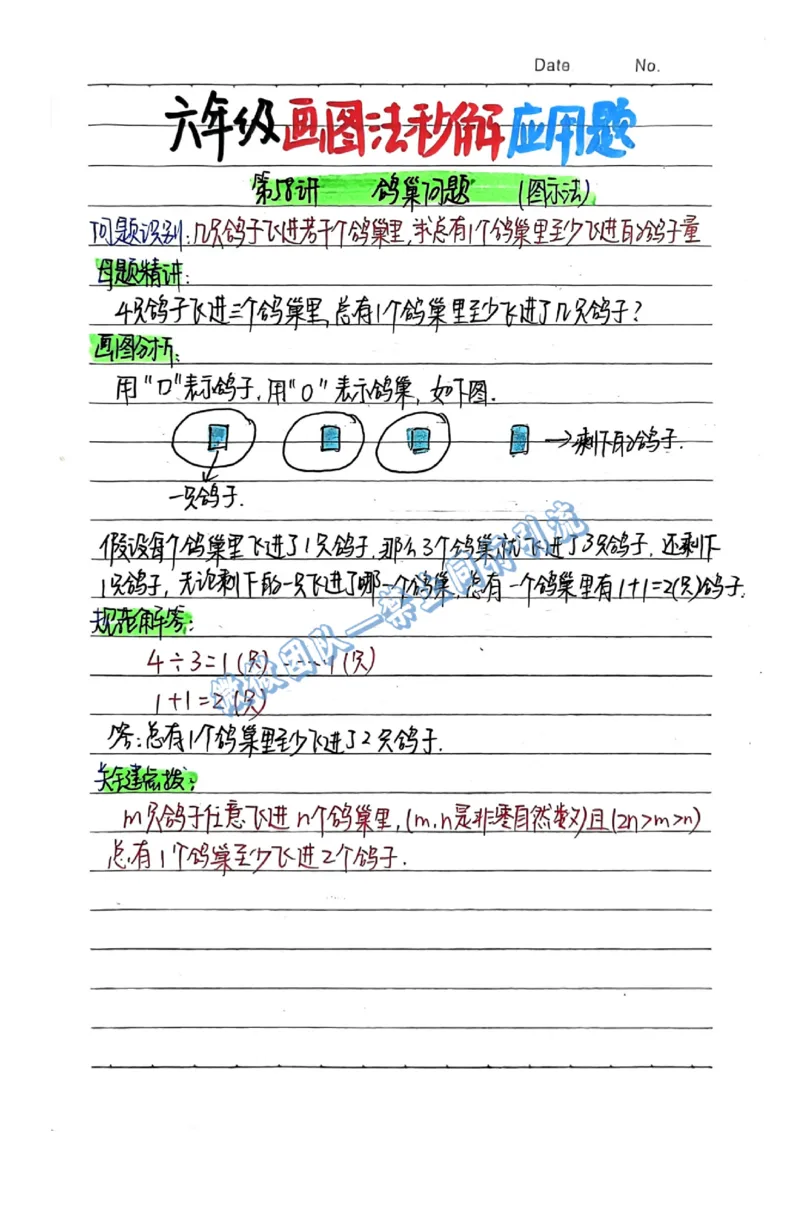 Date No.
六年级画图法秒解应用题
第58讲 鸽巢问题 (图示法)
问题识别:几只鸽子飞进若干个鸽巢里,求总有1个鸽巢里至少飞进的鸽子量
母题精讲:
4只鸽子飞进三个鸽巢里,总有1个鸽巢里至少飞进了几只鸽子?
画图分析:
用“口”表示鸽子,用“O”表示鸽巢,如下图.
→剩下的鸽子.
一只鸽子.
假设每个鸽巢里飞进了1只鸽子,那么3个鸽巢就飞进了3只鸽子,还剩下
1只鸽子,无论剩下的一只飞进了哪一个鸽巢,总有一个鸽巢里有1+1=2(只)鸽子.
规范解答:
4÷3=1(只)……1(只)
1+1=2(只)
答:总有1个鸽巢里至少飞进了2只鸽子.
关键点拨:
m只鸽子任意飞进n个鸽巢里,(m,n是非零自然数)且(2n>m>n)
总有1个鸽巢至少飞进2个鸽子.
微微团队一禁止同行引流